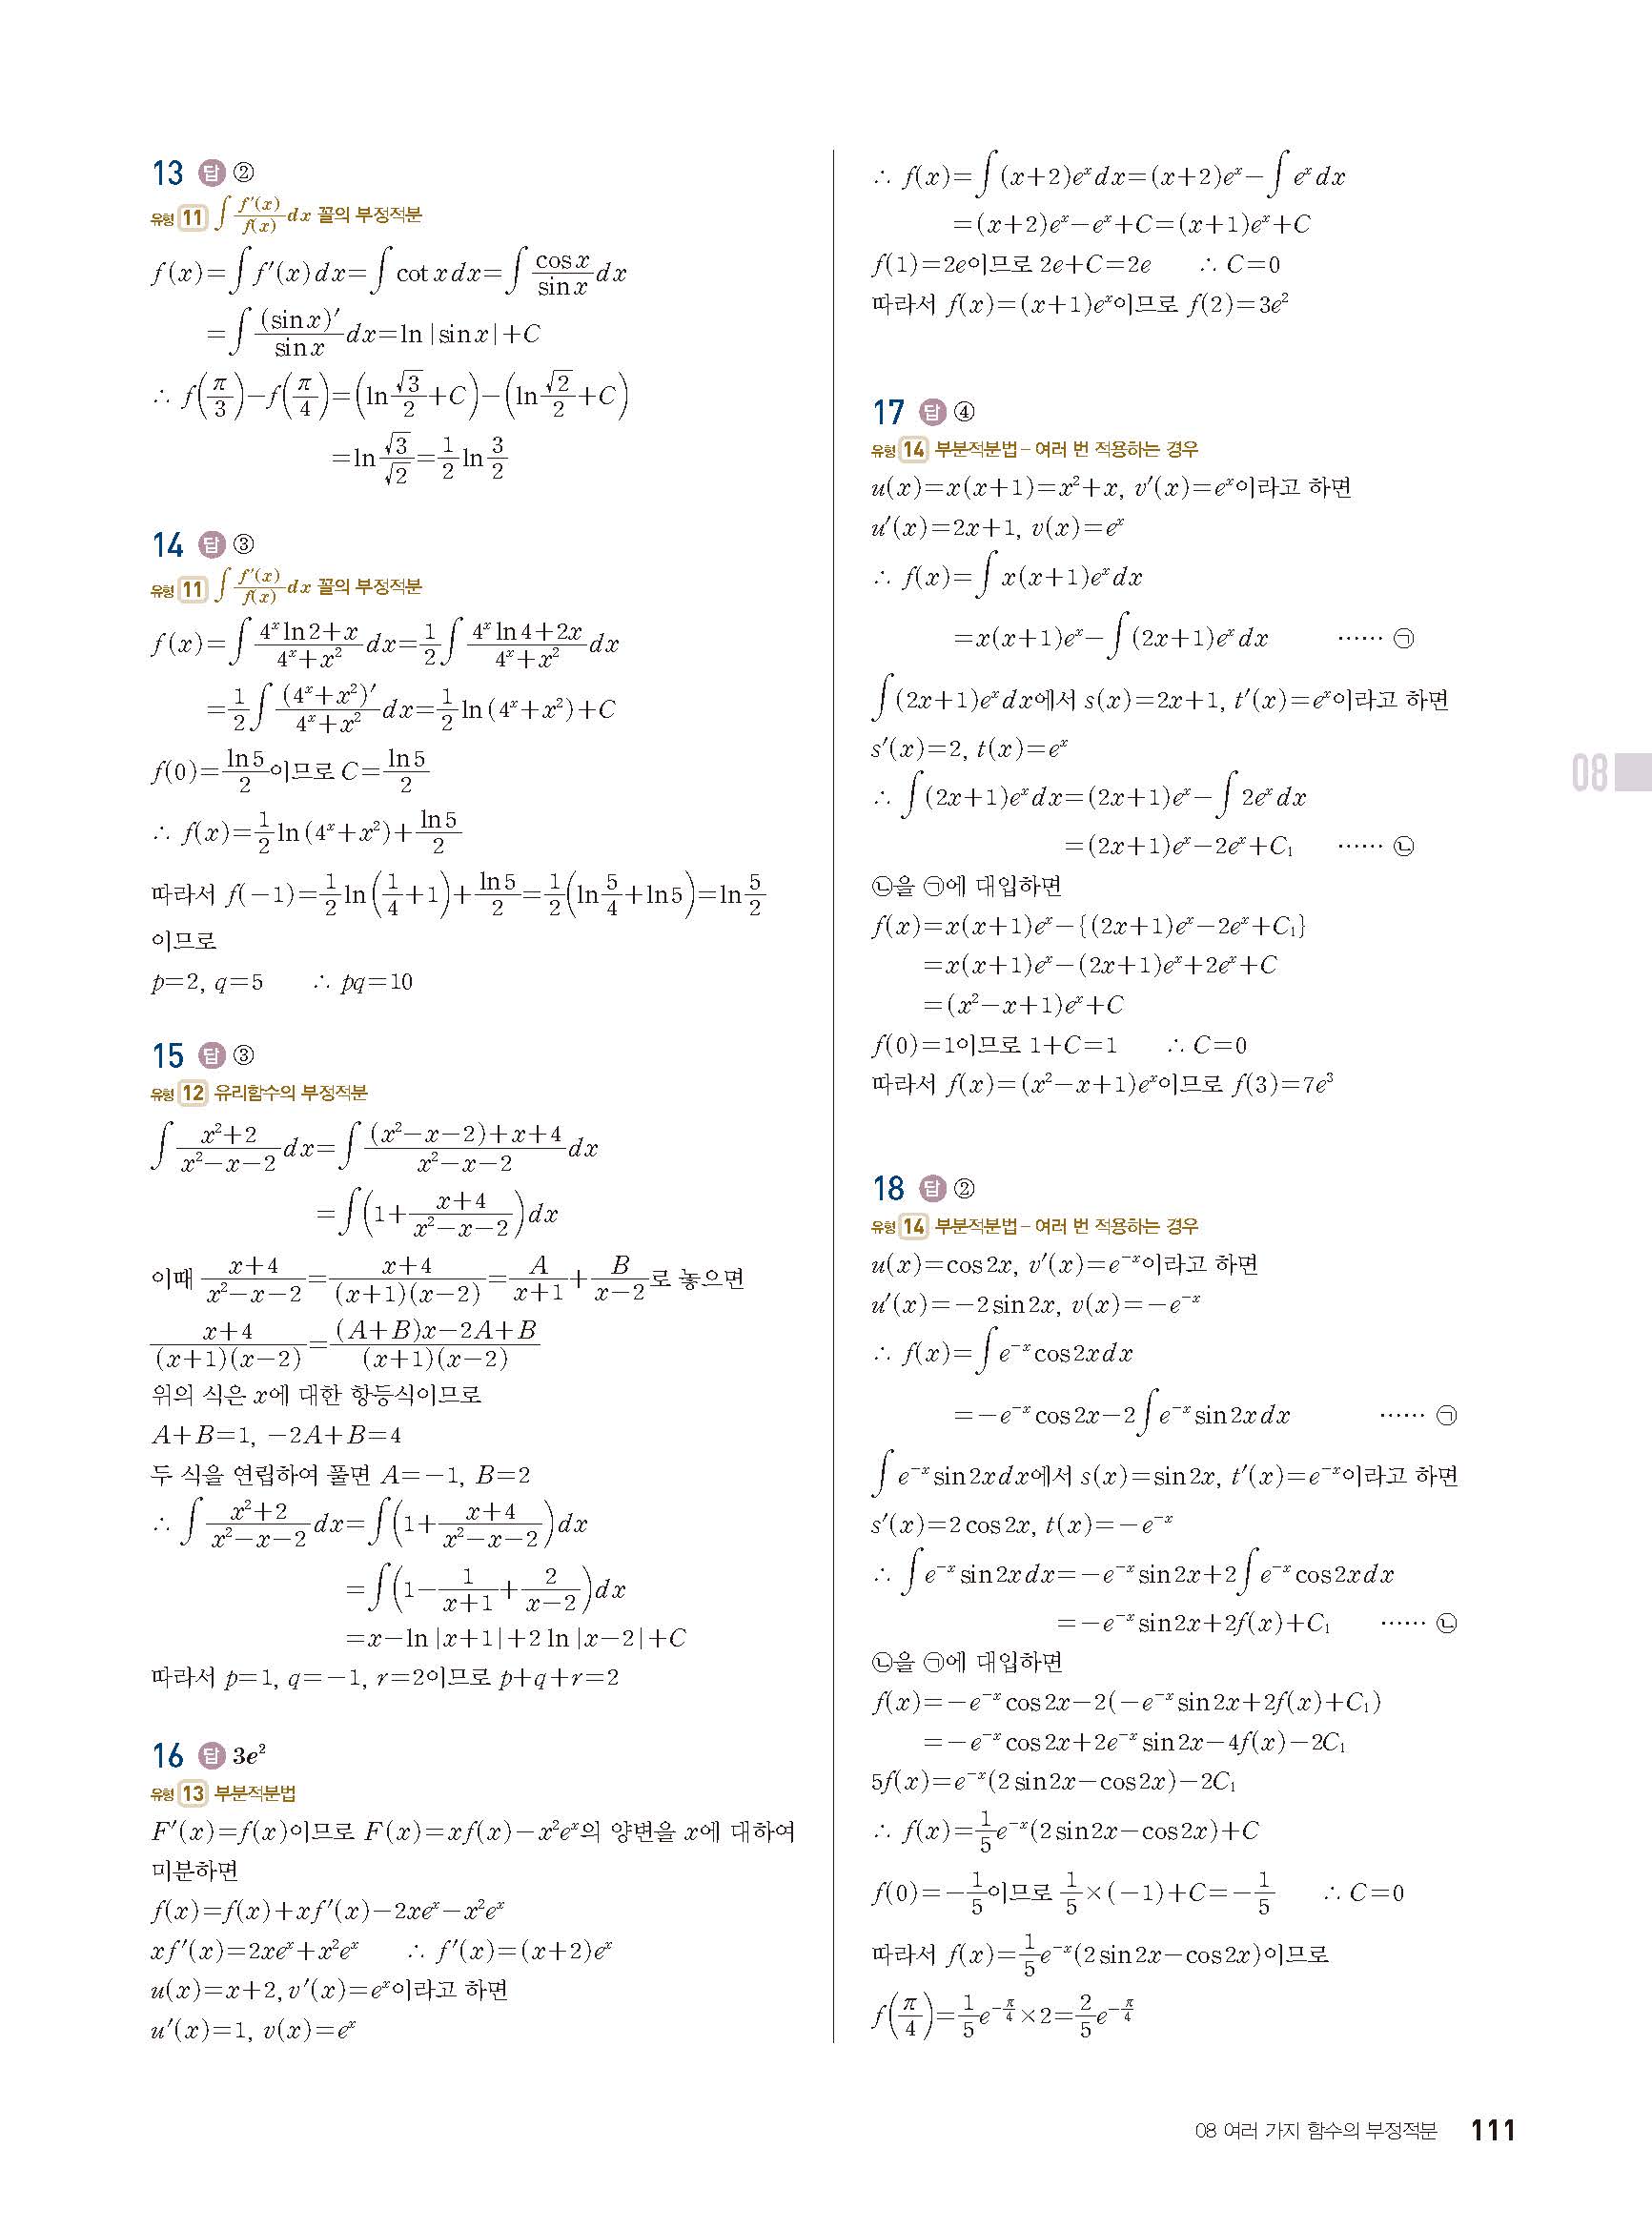 13 답 ②
유형 11 ∫ f′(x)/f(x) dx 꼴의 부정적분
f(x)=∫f′(x)dx=∫cot xdx=∫ cos x/sin x dx
=∫ (sin x)′/sin x dx=ln|sin x|+C
∴ f(π/3)-f(π/4)=(ln √3/2+C)-(ln √2/2+C)
=ln √3/√2=1/2 ln 3/2
14 답 ③
유형 11 ∫ f′(x)/f(x) dx 꼴의 부정적분
f(x)=∫ (4ˣln2+x)/(4ˣ+x²) dx=1/2 ∫ (4ˣln4+2x)/(4ˣ+x²) dx
=1/2 ∫ (4ˣ+x²)′/(4ˣ+x²) dx=1/2 ln(4ˣ+x²)+C
f(0)=ln5/2이므로 C=ln5/2
∴ f(x)=1/2 ln(4ˣ+x²)+ln5/2
따라서 f(-1)=1/2 ln(1/4+1)+ln5/2=1/2(ln 5/4+ln5)=ln 5/2
이므로
p=2, q=5 ∴ pq=10
15 답 ③
유형 12 유리함수의 부정적분
∫ (x²+2)/(x²-x-2) dx=∫ {(x²-x-2)+x+4}/(x²-x-2) dx
=∫(1+(x+4)/(x²-x-2))dx
이때 (x+4)/(x²-x-2)=(x+4)/{(x+1)(x-2)}=A/(x+1)+B/(x-2)로 놓으면
(x+4)/{(x+1)(x-2)}={(A+B)x-2A+B}/{(x+1)(x-2)}
위의 식은 x에 대한 항등식이므로
A+B=1, -2A+B=4
두 식을 연립하여 풀면 A=-1, B=2
∴ ∫ (x²+2)/(x²-x-2) dx=∫(1+(x+4)/(x²-x-2))dx
=∫(1-1/(x+1)+2/(x-2))dx
=x-ln|x+1|+2ln|x-2|+C
따라서 p=1, q=-1, r=2이므로 p+q+r=2
16 답 3e²
유형 13 부분적분법
F′(x)=f(x)이므로 F(x)=xf(x)-x²eˣ의 양변을 x에 대하여
미분하면
f(x)=f(x)+xf′(x)-2xeˣ-x²eˣ
xf′(x)=2xeˣ+x²eˣ ∴ f′(x)=(x+2)eˣ
u(x)=x+2, v′(x)=eˣ이라고 하면
u′(x)=1, v(x)=eˣ
∴ f(x)=∫(x+2)eˣdx=(x+2)eˣ-∫eˣdx
=(x+2)eˣ-eˣ+C=(x+1)eˣ+C
f(1)=2e이므로 2e+C=2e ∴ C=0
따라서 f(x)=(x+1)eˣ이므로 f(2)=3e²
17 답 ④
유형 14 부분적분법 - 여러 번 적용하는 경우
u(x)=x(x+1)=x²+x, v′(x)=eˣ이라고 하면
u′(x)=2x+1, v(x)=eˣ
∴ f(x)=∫x(x+1)eˣdx
=x(x+1)eˣ-∫(2x+1)eˣdx …… ㉠
∫(2x+1)eˣdx에서 s(x)=2x+1, t′(x)=eˣ이라고 하면
s′(x)=2, t(x)=eˣ
∴ ∫(2x+1)eˣdx=(2x+1)eˣ-∫2eˣdx
=(2x+1)eˣ-2eˣ+C₁ …… ㉡
㉡을 ㉠에 대입하면
f(x)=x(x+1)eˣ-{(2x+1)eˣ-2eˣ+C₁}
=x(x+1)eˣ-(2x+1)eˣ+2eˣ+C
=(x²-x+1)eˣ+C
f(0)=1이므로 1+C=1 ∴ C=0
따라서 f(x)=(x²-x+1)eˣ이므로 f(3)=7e³
18 답 ②
유형 14 부분적분법 - 여러 번 적용하는 경우
u(x)=cos2x, v′(x)=e⁻ˣ이라고 하면
u′(x)=-2sin2x, v(x)=-e⁻ˣ
∴ f(x)=∫e⁻ˣcos2xdx
=-e⁻ˣcos2x-2∫e⁻ˣsin2xdx …… ㉠
∫e⁻ˣsin2xdx에서 s(x)=sin2x, t′(x)=e⁻ˣ이라고 하면
s′(x)=2cos2x, t(x)=-e⁻ˣ
∴ ∫e⁻ˣsin2xdx=-e⁻ˣsin2x+2∫e⁻ˣcos2xdx
=-e⁻ˣsin2x+2f(x)+C₁ …… ㉡
㉡을 ㉠에 대입하면
f(x)=-e⁻ˣcos2x-2(-e⁻ˣsin2x+2f(x)+C₁)
=-e⁻ˣcos2x+2e⁻ˣsin2x-4f(x)-2C₁
5f(x)=e⁻ˣ(2sin2x-cos2x)-2C₁
∴ f(x)=1/5 e⁻ˣ(2sin2x-cos2x)+C
f(0)=-1/5이므로 1/5×(-1)+C=-1/5 ∴ C=0
따라서 f(x)=1/5 e⁻ˣ(2sin2x-cos2x)이므로
f(π/4)=1/5 e^(-π/4)×2=2/5 e^(-π/4)
08
08 여러 가지 함수의 부정적분 111